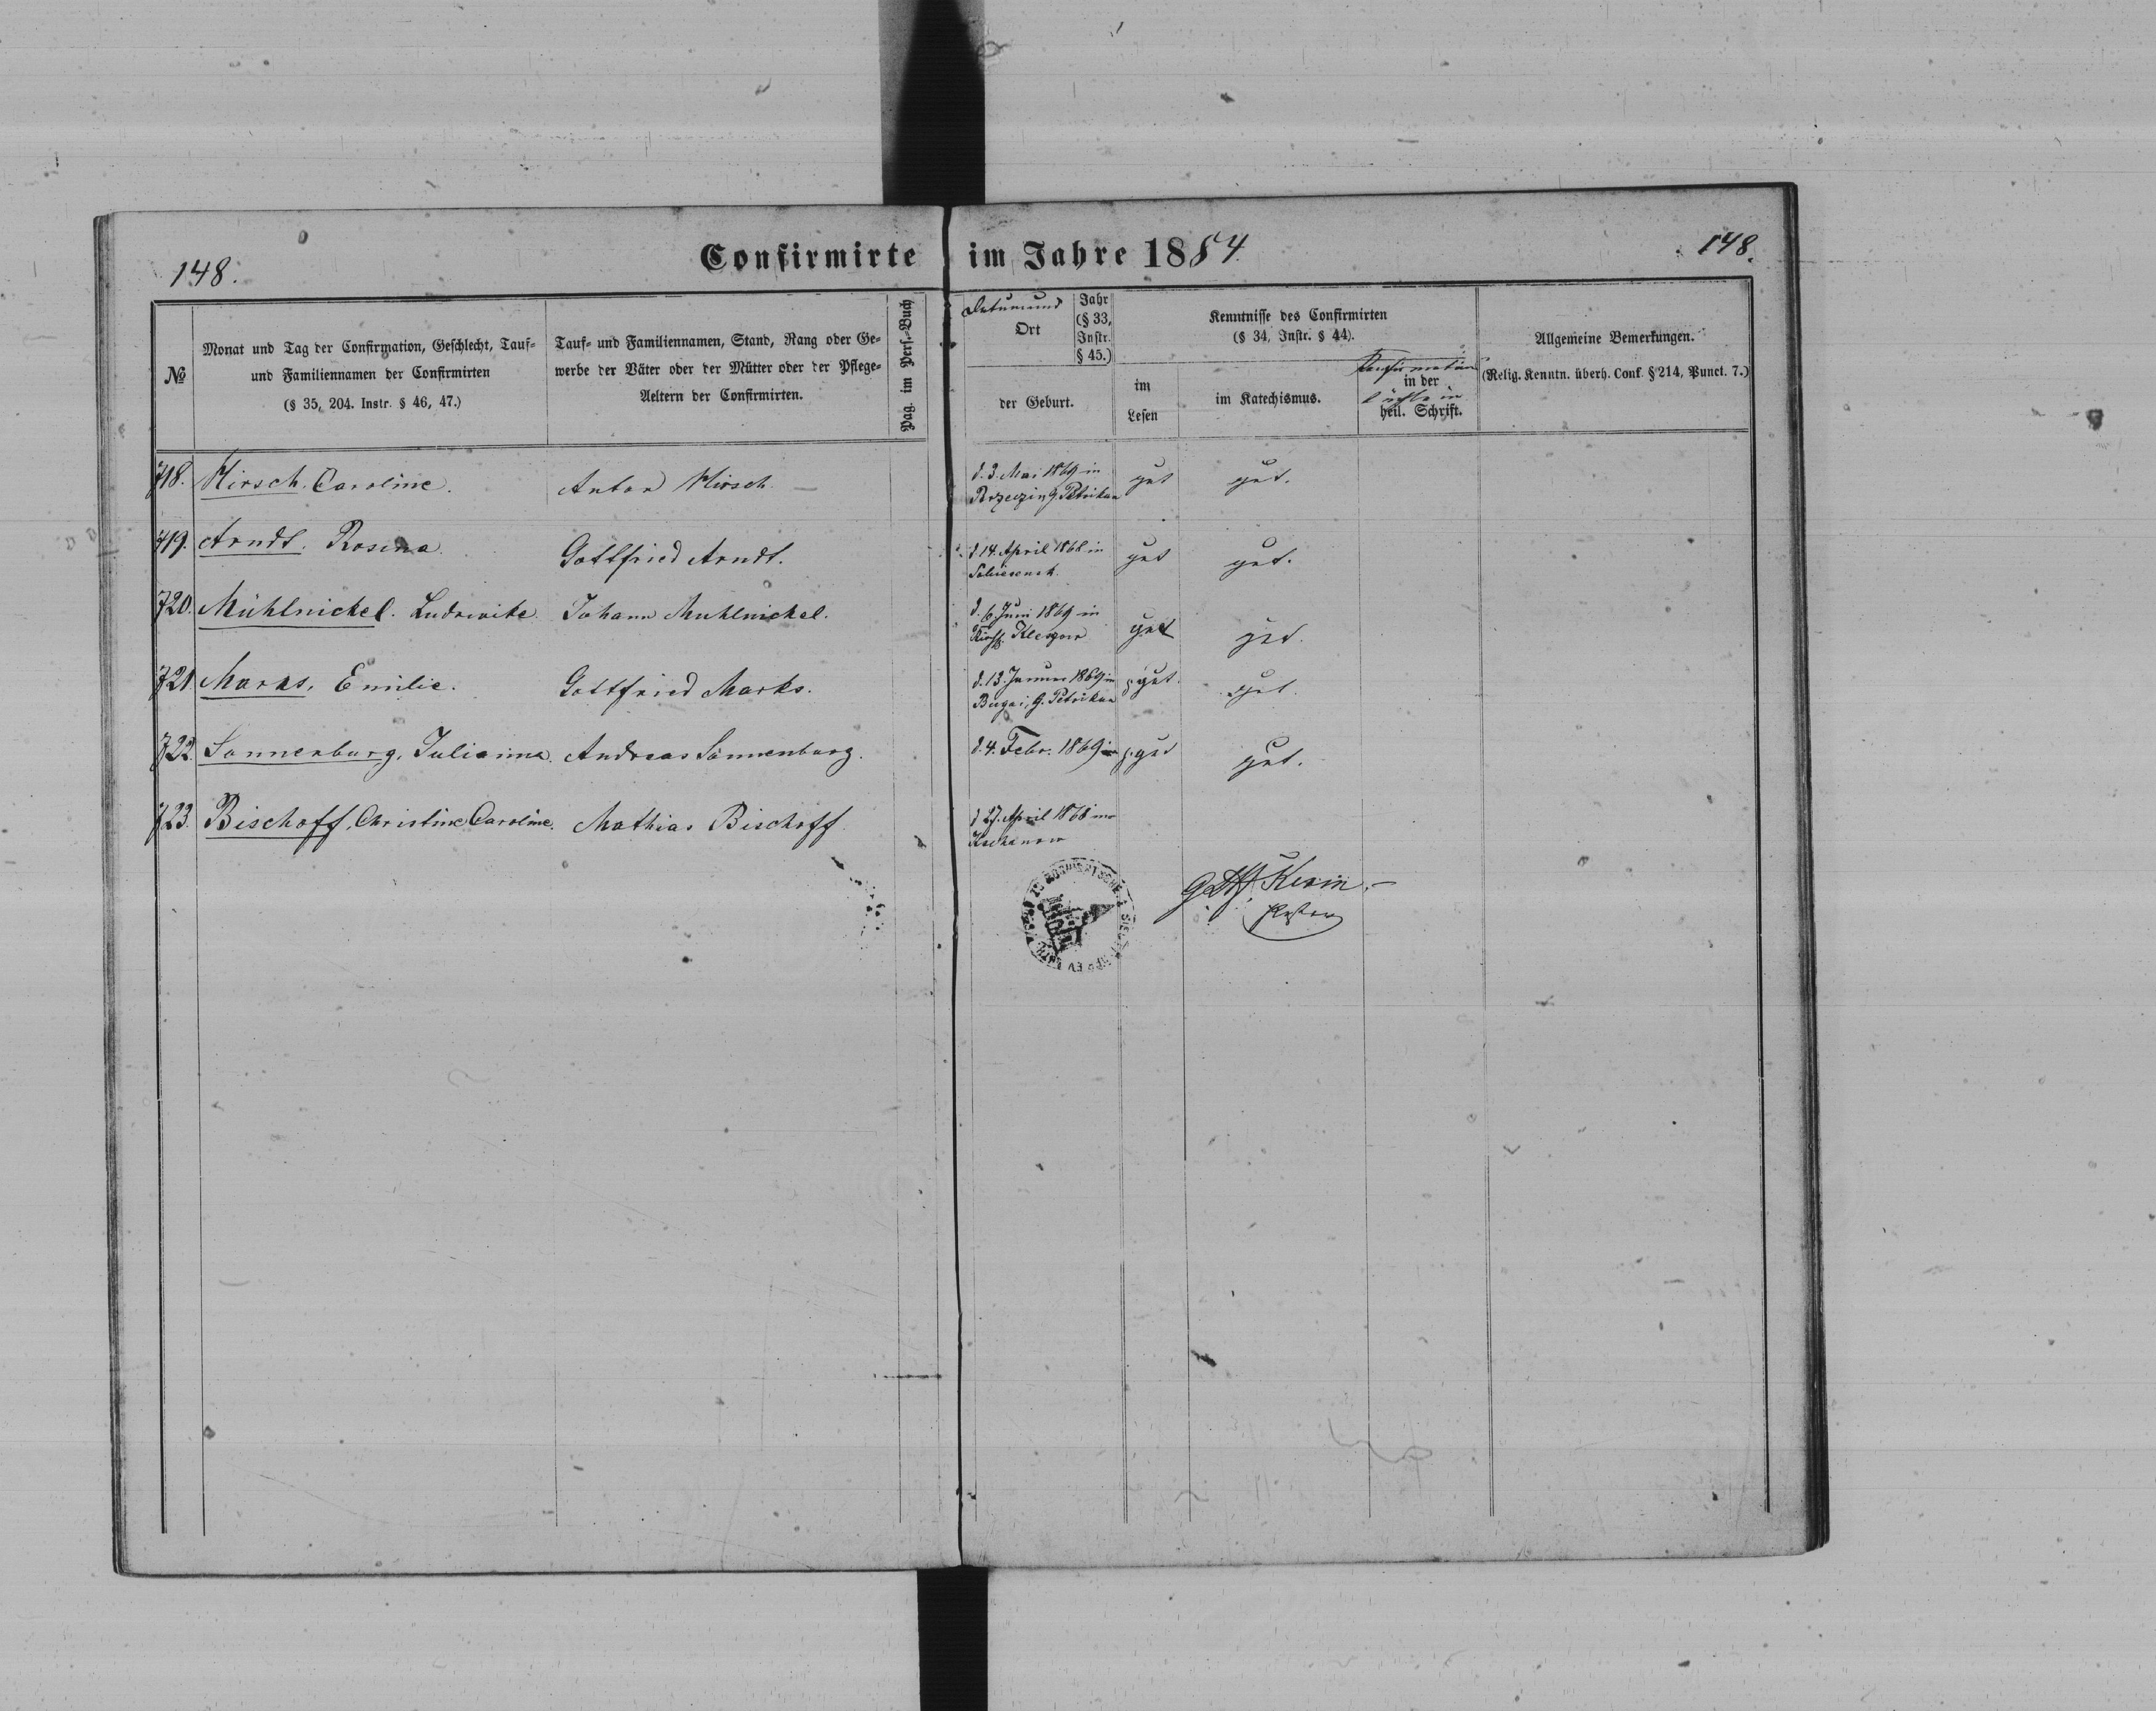 148.
Confirmirte im Jahre 1884.
148.
№
Monat und Tag der Confirmation, Geschlecht, Tauf-
und Familiennamen der Confirmirten
(§ 35, 204. Instr. § 46, 47.)
Tauf- und Familiennamen, Stand, Rang oder Ge-
werbe der Väter oder der Mütter oder der Pflege-
Aeltern der Confirmirten.
Pag. im Pers.-Buch
Datum und
Ort
Jahr
(§ 33,
Instr.
§ 45.)
der Geburt.
Kenntnisse des Confirmirten
(§ 34, Instr. § 44).
im
Lesen
im Katechismus.
in der
heil. Schrift.
Allgemeine Bemerkungen.
(Relig. Kenntn. überh. Conf. § 214, Punct. 7.)
718. Hirsch. Caroline. Anton Hirsch. d. 3. Mai 1869 in gut gut.
G. Petrikau
719. Arndt. Rosina. Gottfried Arndt. d. 14. April 1868 in gut gut.
720. Mühlnickel. Ludwike. Johann Muhlnickel. d. 6. Juni 1869 in gut gut.
721. Marks, Emilie. Gottfried Marks. d. 13. Januar 1869 in z. gut. gut.
Bugai, G. Petrikau
722. Sonnenburg, Julianna. Andreas Sonnenburg. d. 4. Febr. 1869 in z. gut gut.
723. Bischoff, Christine Caroline. Mathias Bischoff. d 27. April 1868 in
Pastor